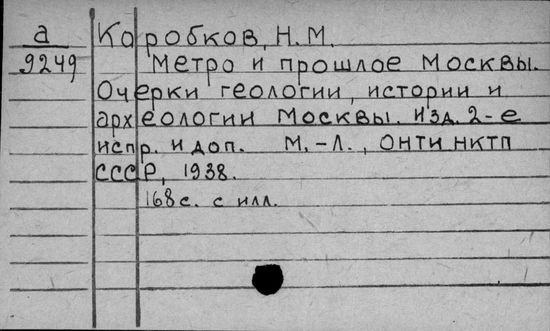 а Коробков, Н.М.
9249 Метро и прошлое Москвы.
Очерки геологии, истории и
археологии Москвы. Изд. 2-е
испр. и доп. М.-Л., ОНТИ НКТП
СССР, 1938.
168 с. с илл.